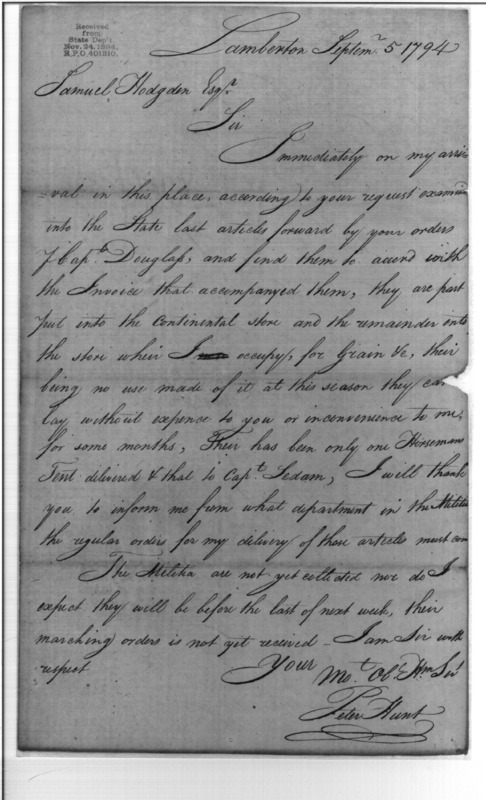 Received
from
State Dep't.
Nov. 24, 1894.
R.P.O. 401210.
Lamberton Septemr 5 1794
Samuel Hodgden Esqr.
Sir
Immediately on my arri-
-val in this place, according to your request examin
into the State last articles forward by your orders
Capt. Douglass, and find them to accord with
the Invoice that accompanyed them, they are part
put into the Continental store and the remainder into
the store wheir I occupy, for Grain &c, their
being no use made of it at this season they can
lay without expence to you or inconvenience to me,
for some months, Their has been only one Horsemans
Tent delivered & that to Capt. Ledam, I will thank
you to inform me from what department in the Militia
the regular orders for my delivery of those articles must com
The Militia are not yet collected nor do I
expect they will be before the last of next week, their
marching orders is not yet received - I am Sir with
respect
Your Mot. Obt. Hm Sert
Peter Hunt